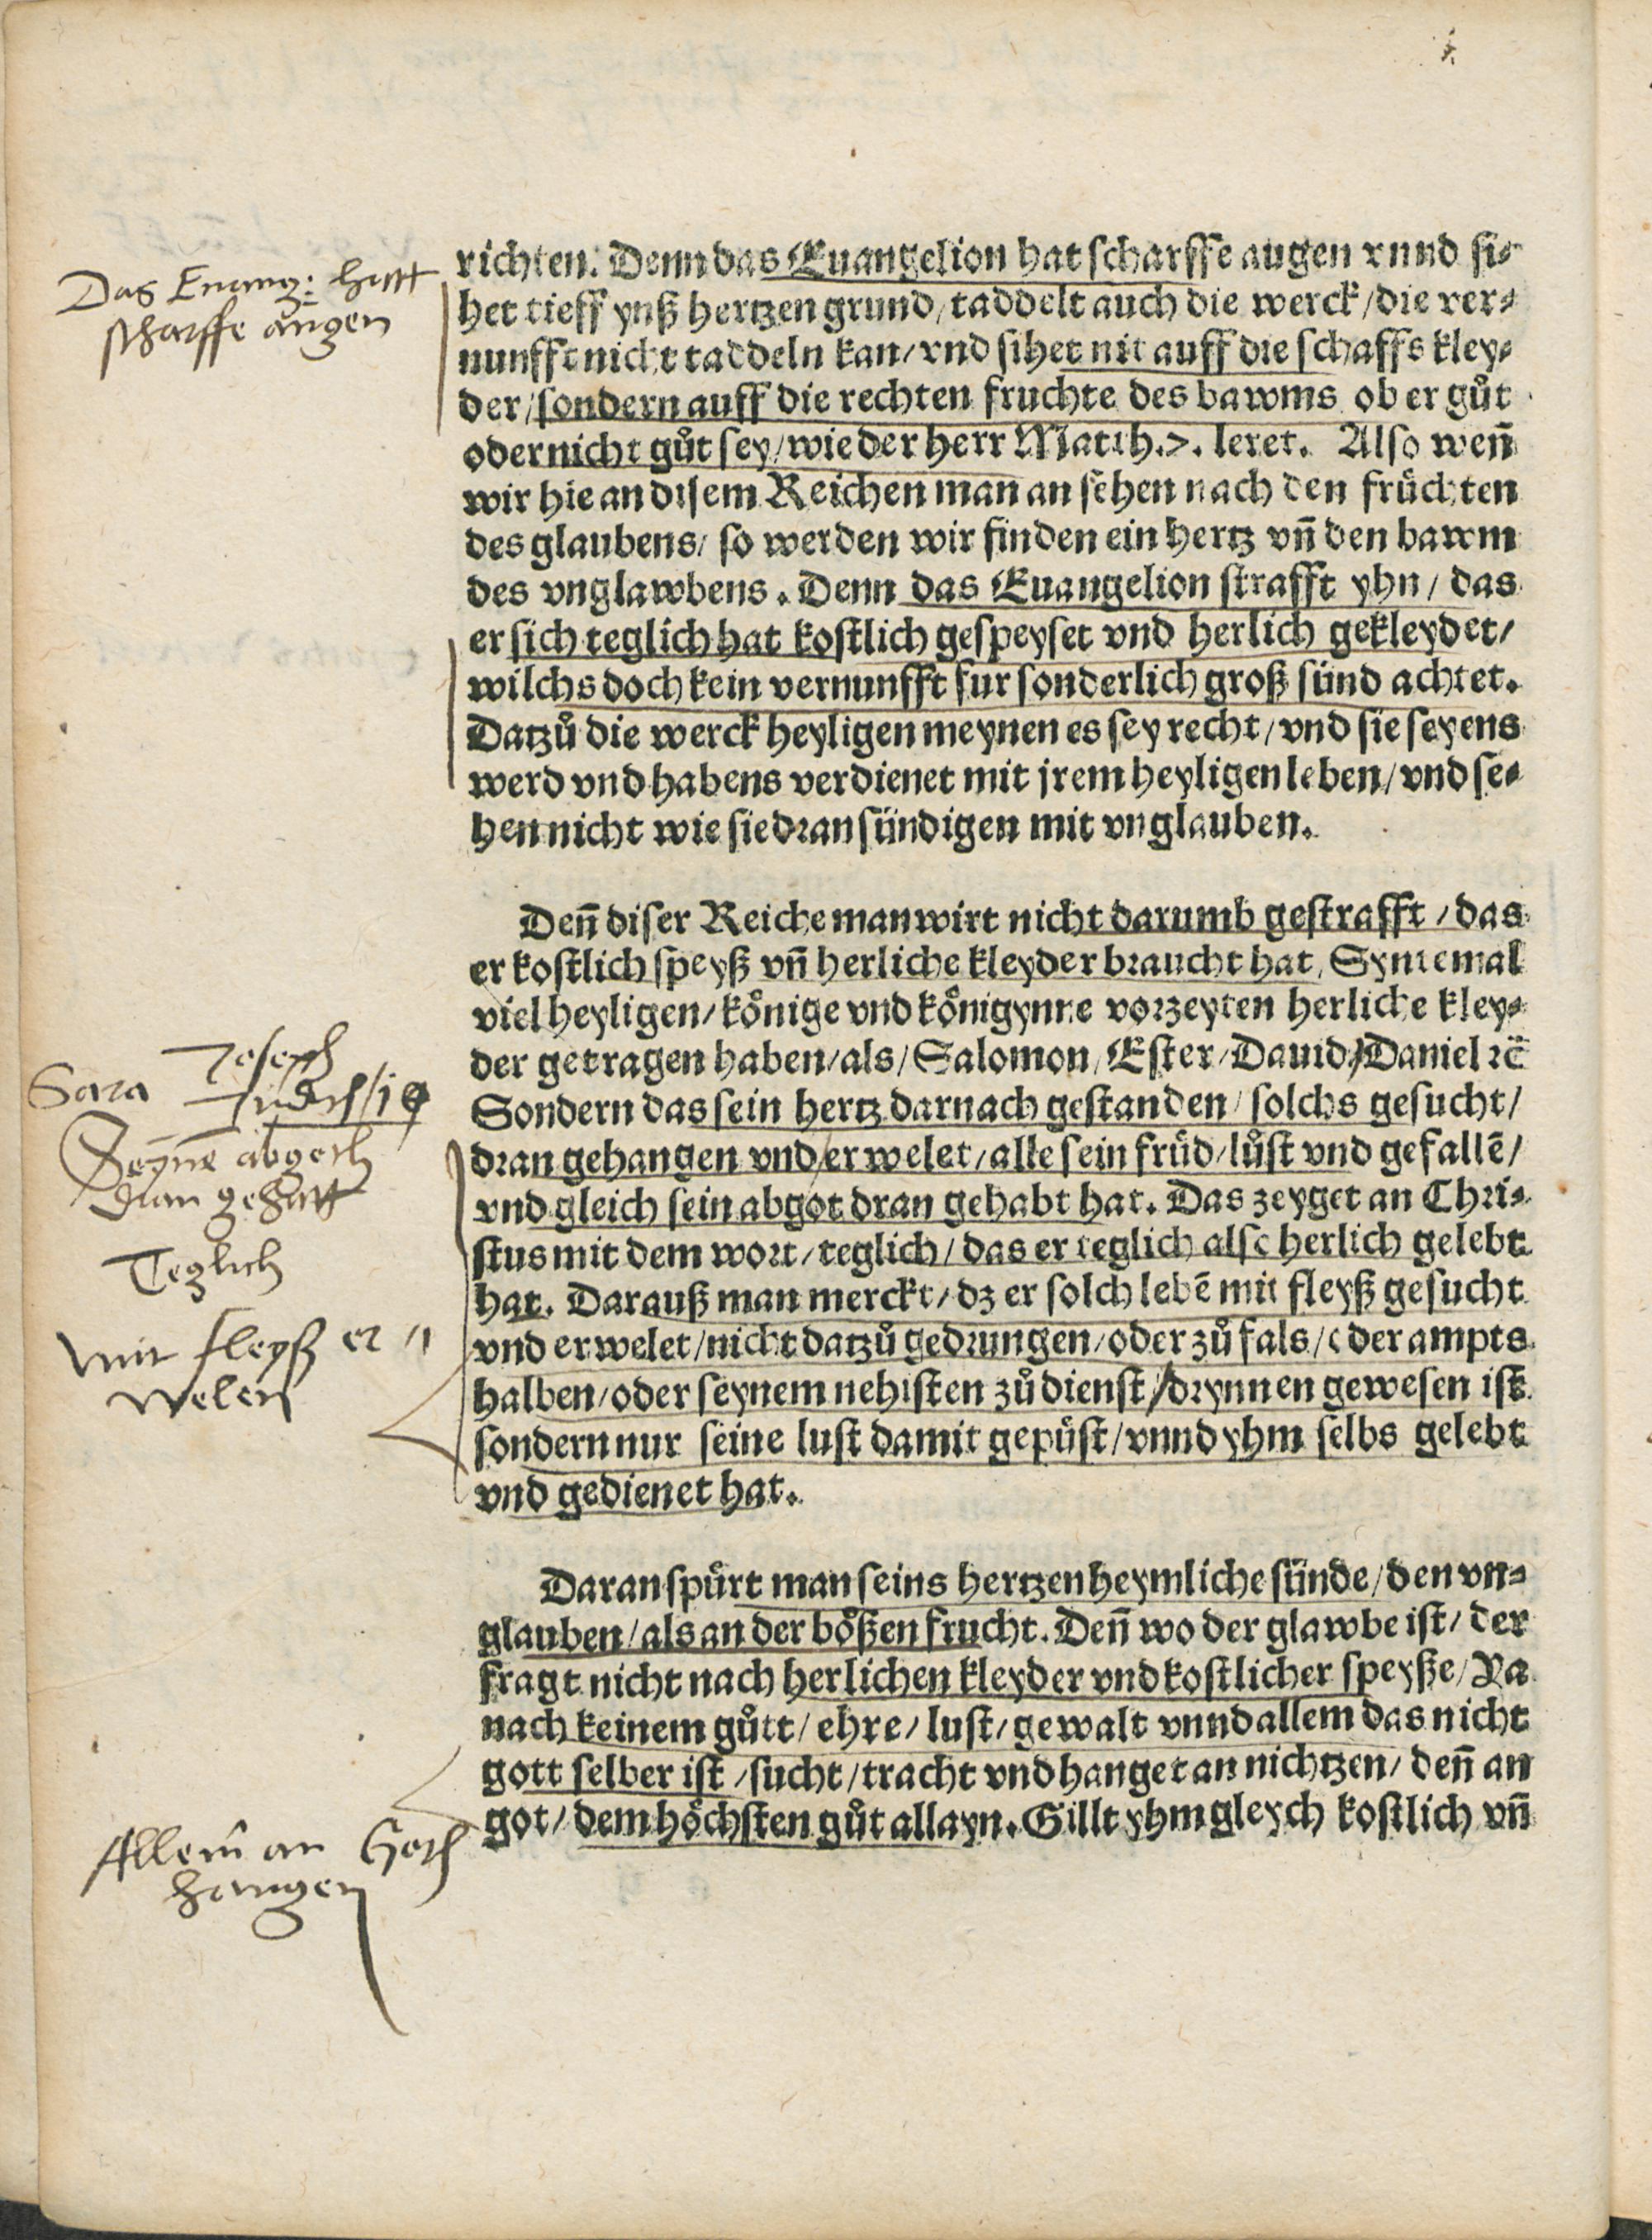 richten. Denn das Euangelion hat scharffe augen vnnd si⸗
het tieff ynß hertzen grund/taddelt auch die werck/die ver⸗
nunfft nicht taddeln kan/vnd sihet nit auff die schaffs kley⸗
der/sondern auff die rechten fruchte des bawms ob er gůt
oder nicht gůt sey/wie der herr Matth.7. leret. Also weñ
wir hie an disem Reichen man an sehen nach den früchten
des glaubens/ so werden wir finden ein hertz vñ den bawm
des vnglawbens. Denn das Euangelion strafft yhn/ das
er sich teglich hat kostlich gespeyset vnd herlich gekleydet/
wilchs doch kein vernunfft fur sonderlich groß sünd achtet.
Datzů die werck heyligen meynen es sey recht/vnd sie seyens
werd vnd habens verdienet mit jrem heyligen leben/vnd se⸗
hen nicht wie sie dran sündigen mit vnglauben.
Deñ diser Reiche man wirt nicht darumb gestrafft/das
er kostlich speyß vñ herliche kleyder braucht hat, Syntemal
viel heyligen/kȯnige vnd kȯnigynne vorzeyten herliche kley⸗
der getragen haben/als/Salomon/Ester/Dauid/Daniel ꝛc̄
Sondern das sein hertz darnach gestanden/solchs gesucht/
dran gehangen vnd erwelet/alle sein frůd/lůst vnd gefallē/
vnd gleich sein abgot dran gehabt hat. Das zeyget an Chri⸗
stus mit dem wort/teglich/das er teglich also herlich gelebt
hat. Darauß man merckt/dz er solch lebē mit fleyß gesucht
vnd erwelet/nicht datzů gedrungen/oder zů fals/oder ampts
halben/oder seynem nehisten zů dienst/drynnen gewesen ist
sondern nur seine lust damit gepůst/vnnd yhm selbs gelebt
vnd gedienet hat.
Daran spůrt man seins hertzen heymliche sünde/den vn⸗
glauben/als an der bȯßen frucht. Deñ wo der glawbe ist/ der
fragt nicht nach herlichen kleyder vnd kostlicher speyße/Ya
nach keinem gůtt/ehre/lust/gewalt vnnd allem das nicht
gott selber ist/sucht/tracht vnd hanget an nichtzen/ deñ an
got/dem hȯchsten gůt allayn. Gillt yhm gleych kostlich vñ
Das Euang: hatt
scharffe augen
Joseph
Sara Judith
Seyne abgoth
dran gehatt
Teglich
mit fleyß er
welen
Allein an Goth
hangen